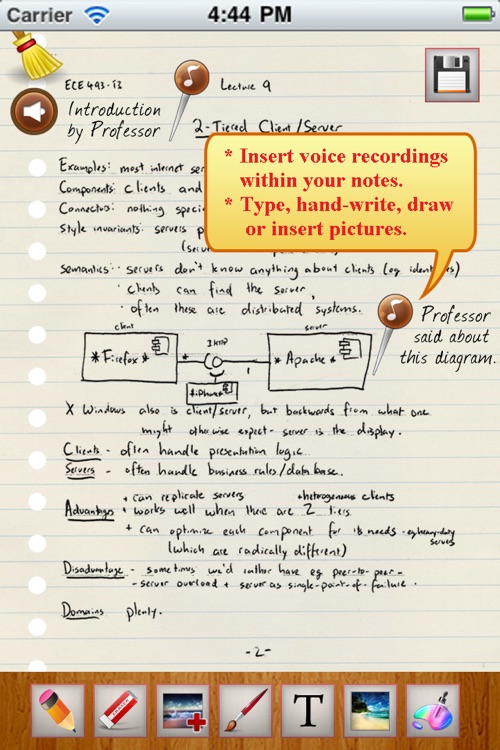 Carrier 4:44 PM
ECE 493-T3 Lecture 9
Introduction
by Professor
2-Tiered Client/Server
Examples: most internet ser
* Insert voice recordings
within your notes.
* Type, hand-write, draw
or insert pictures.
Components: clients and
Connectors: nothing speci
Style invariants: servers p
(ser
Semantics: servers don't know anything about clients (eg identities)
· clients can find the server,
· often these are distributed systems.
Professor
said about
this diagram.
client server
* Firefox * * Apache *
HTTP
iPhone
X Windows also is client/server, but backwards from what one
might otherwise expect - server is the display.
Clients - often handle presentation logic
Servers - often handle business rules/database.
Advantages + can replicate servers +heterogenous clients
+ works well when there are 2 tiers
+ can optimize each component for its needs - eg heavy-duty
servers
(which are radically different)
Disadvantage - sometimes we'd rather have eg peer-to-peer -
- server overload + server as single-point-of-failure.
Domains plenty.
-2-
T